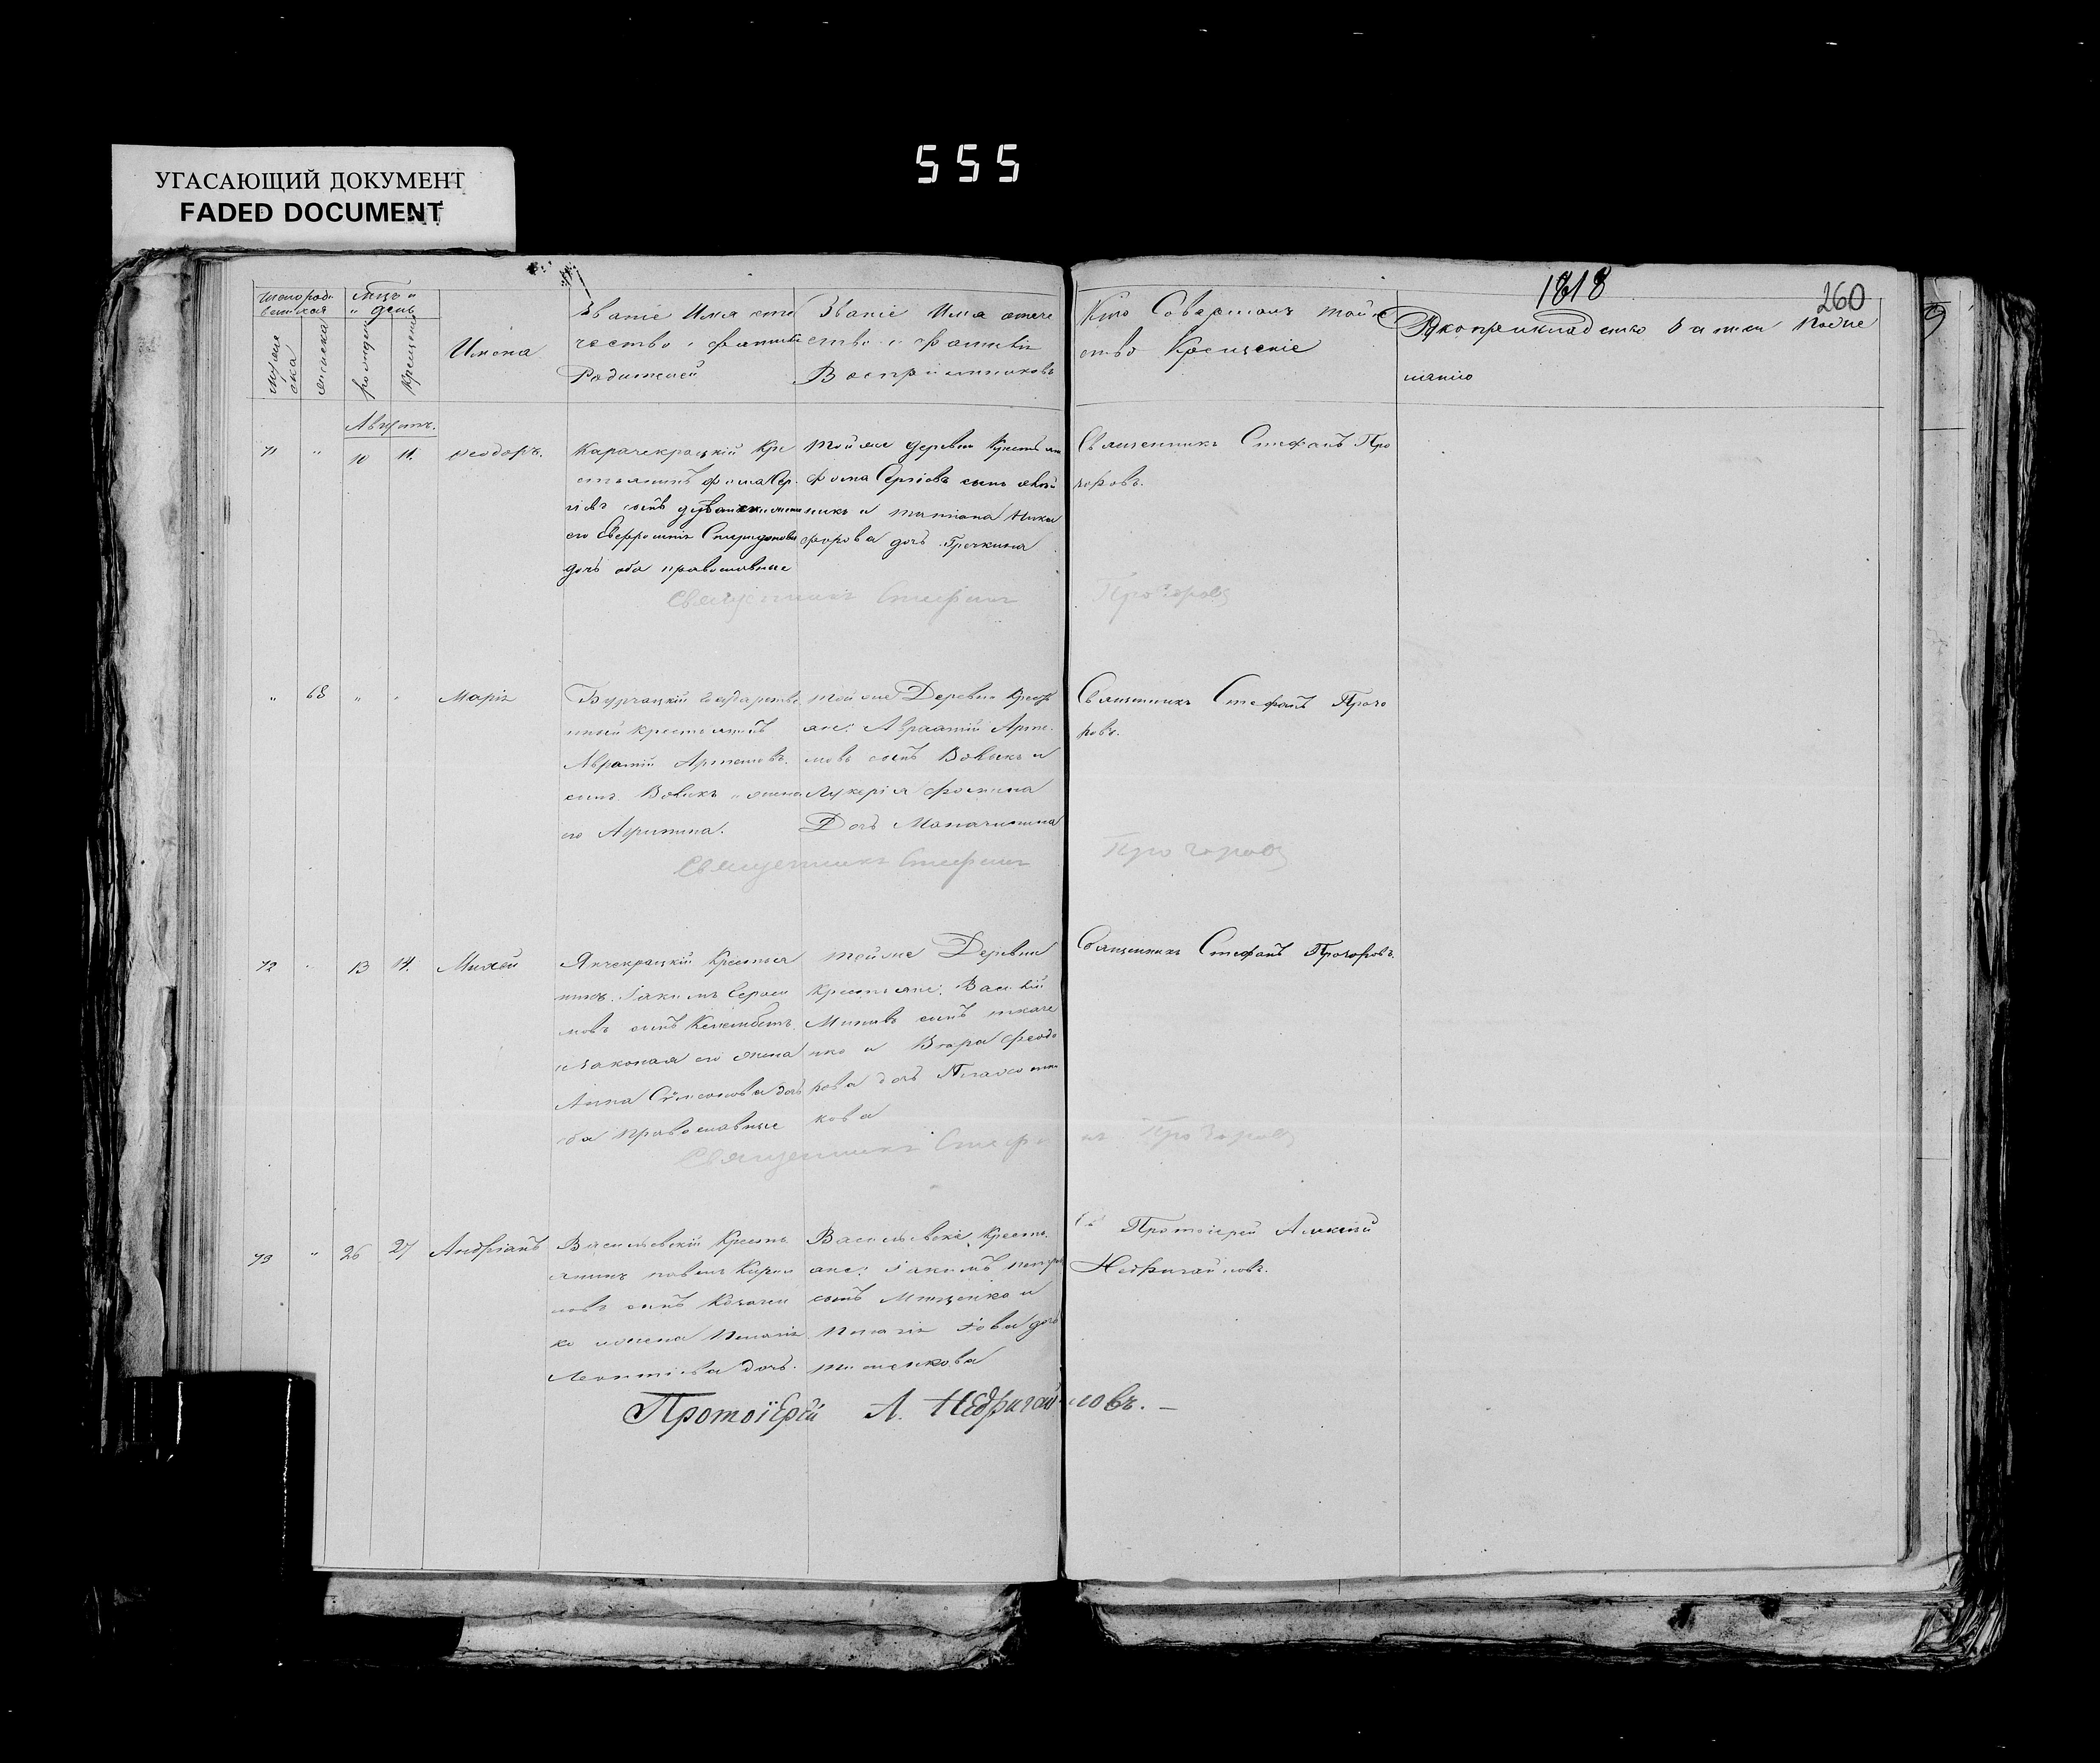 555
УГАСАЮЩИЙ ДОКУМЕНТ
FADED DOCUMENT
1818
260
день
мужеска
женска
рожденія
крещенія
Имена
Званіе Имя отече
чество и фамилія
Родителей
Званіе Имя отече
ство и фамилія
Воспріемниковъ
Кто Совершалъ таин
ство Крещенія
Рукоприкладство
Августъ.
71
"
10
11.
Ѳеодоръ.
Карачекрацкій Кре
стьянинъ Фома Сер
гіевъ сынъ
его Евфросинія Спиридонова
дочь оба православные
Той же деревни Крестьян
Фома Сергіевъ сынъ
и Татіана Ники
форова дочь Гречкина
Священникъ Стефанъ Про
зоровъ.
Священникъ Стефанъ Прозоровъ
"
68
"
"
Марія
Бурчацкій Государстве
нный крестьянинъ
Авраамій Артемовъ
сынъ Вовкъ и жена
его Агрипина.
Той же Деревни Крест
яне: Авраамій Арте
мовъ сынъ Вовкъ и
Лукерія Фомина
Дочь
Священникъ Стефанъ Прозо
ровъ.
Священникъ Стефанъ Прозоровъ
72
"
13
14.
Михей
Янчекрацкій Крестья
нинъ Іакимъ Гераси
мовъ сынъ
и законная его жена
Анна Симеонова дочь
оба православные
Той же Деревни
Крестьяне: Василій
сынъ Ткаче
нко и Вѣра Феодо
рова дочь
кова
Священникъ Стефанъ Прозоровъ.
Священникъ Стефанъ Прозоровъ
73
"
26
27
Андріанъ
Васильевскій Кресть
янинъ Павелъ Кирил
ловъ сынъ Козаче
ко и жена Пелагія
Леонтіева дочь.
Васильевскіе Кресть
яне: Іакимъ Петровъ
сынъ Мищенко и
Пелагія Іова дочь
Тимченкова
Протоіерей Алексій
Недригайловъ.
Протоіерей А. Недригайловъ. —